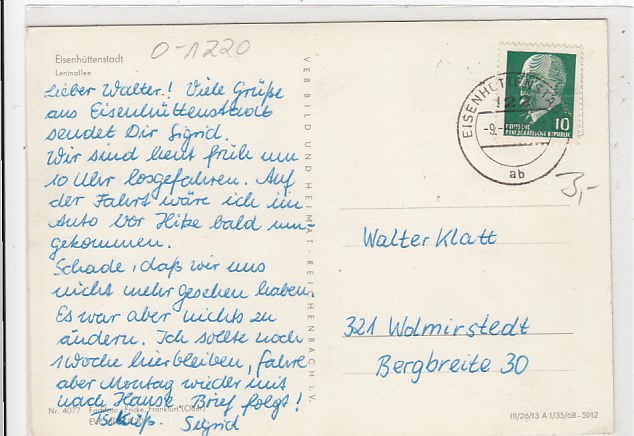 Eisenhüttenstadt
Leninallee
O-1220
Lieber Walter! Viele Grüße
aus Eisenhüttenstadt
sendet Dir Sigrid.
Wir sind heut früh um
10 Uhr losgefahren. Auf
der Fahrt wäre ich im
Auto vor Hitze bald um-
gekommen.
Schade, daß wir uns
nicht mehr gesehen haben.
Es war aber nichts zu
ändern. Ich sollte noch
1 Woche hierbleiben, fahre
aber Montag wieder mit
nach Hause. Brief folgt!
Kuß. Sigrid
Nr. 4077 Farbfoto: Fricke, Frankfurt (Oder)
VEB BILD UND HEIMAT · REICHENBACH I. V.
EISENHÜTTENSTA
122
-9.-
ab
10
DEUTSCHE
DEMOKRATISCHE REPUBLIK
3,-
Walter Klatt
321 Wolmirstedt
Bergbreite 30
III/26/13 A 1/35/68 - 5912